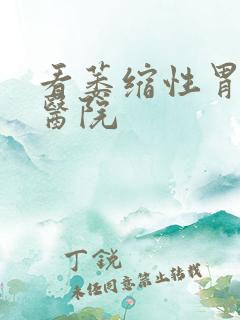 看萎缩性胃
醫院
丁銳
未经同意禁止转载